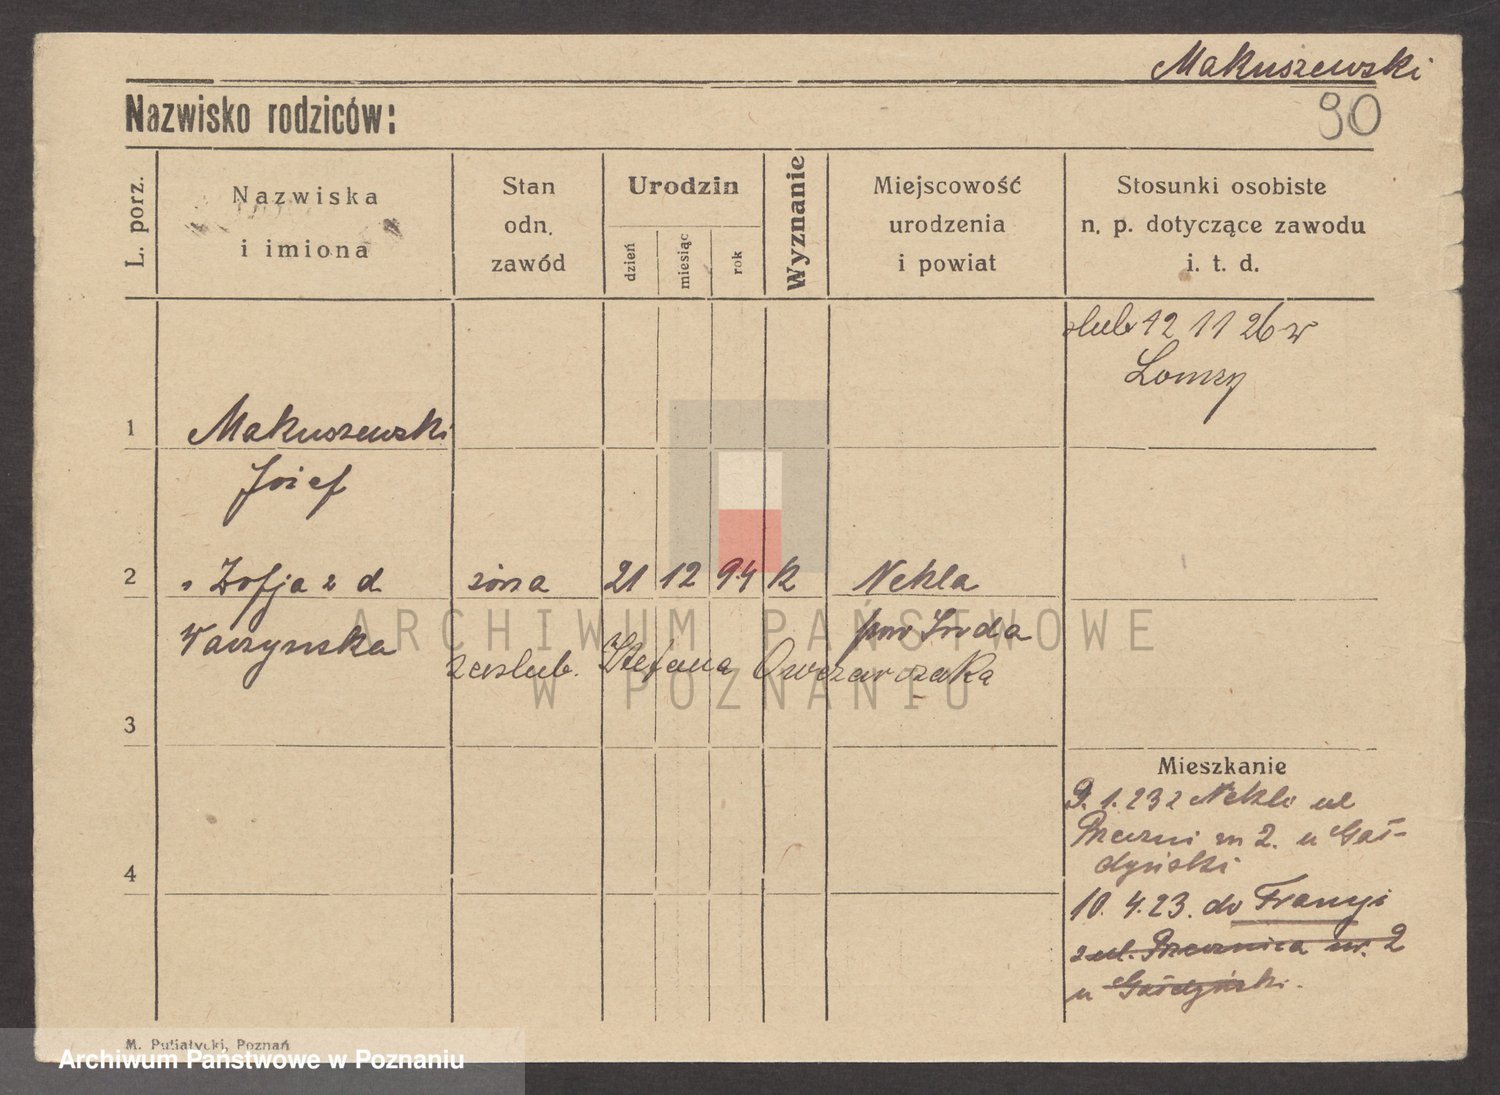 Makuszewski
Nazwisko rodziców:
90
L. porz.
Nazwiska
i imiona
Stan
odn.
zawód
Urodzin
dzień
miesiąc
rok
Wyznanie
Miejscowość
urodzenia
i powiat
Stosunki osobiste
n. p. dotyczące zawodu
i. t. d.
ślub 12 11 26 w
Łomzy
1
Makuszewski
Józef
2
" Zofja z d
żona
21
12
94
k
Nekla
pow Środa
zaślub. Stefana Owczarczaka
ARCHIWUM PAŃSTWOWE
W POZNANIU
3
Mieszkanie
9. 1. 23 z Nekli ul
m 2. u Gał-
dyński
4
10. 4. 23. do Francji
z ul. nr. 2
u Gałdyński.
M. Putiatycki, Poznań
Archiwum Państwowe w Poznaniu